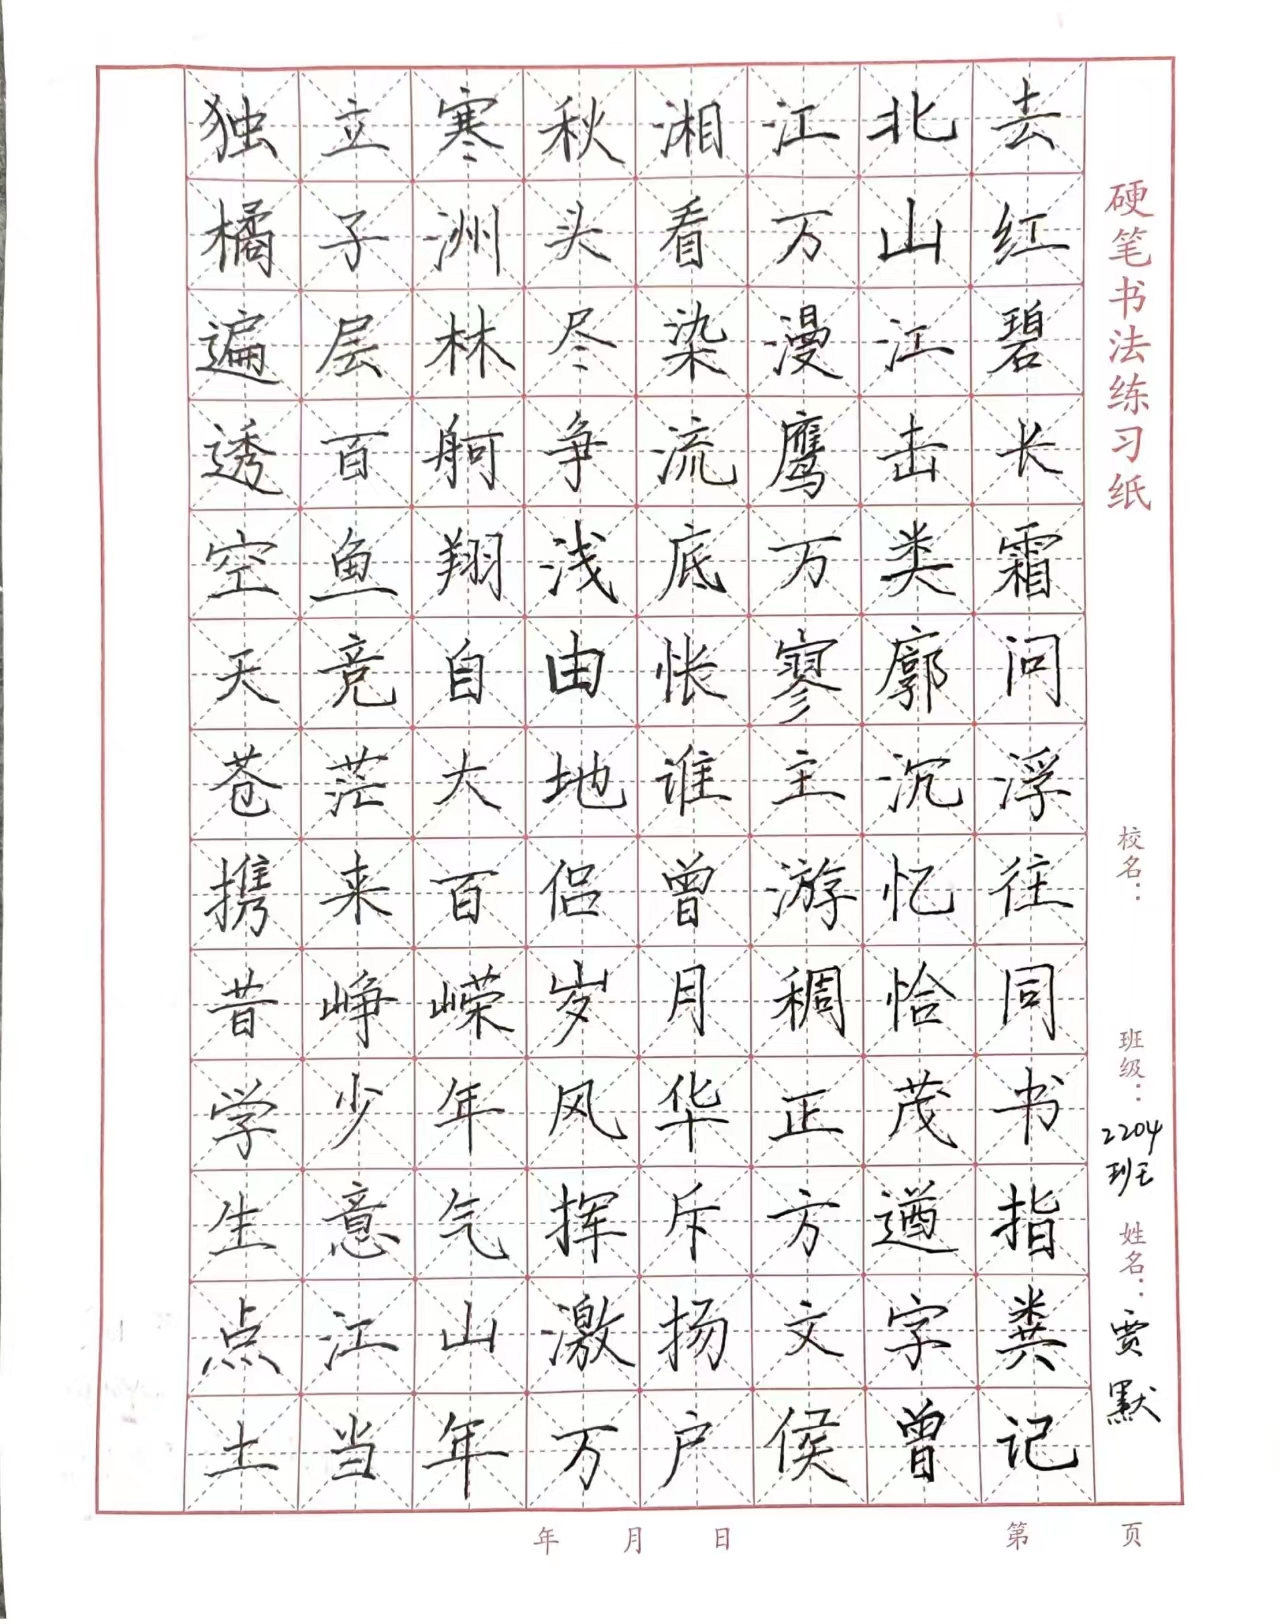 独立寒秋湘江北去
橘子洲头看万山红
遍层林尽染漫江碧
透百舸争流鹰击长
空鱼翔浅底万类霜
天竞自由怅寥廓问
苍茫大地谁主沉浮
携来百侣曾游忆往
昔峥嵘岁月稠恰同
学少年风华正茂书
生意气挥斥方遒指
点江山激扬文字粪
土当年万户侯曾记
硬笔书法练习纸
校名：
班级：2204班
姓名：贾默
年 月 日
第 页